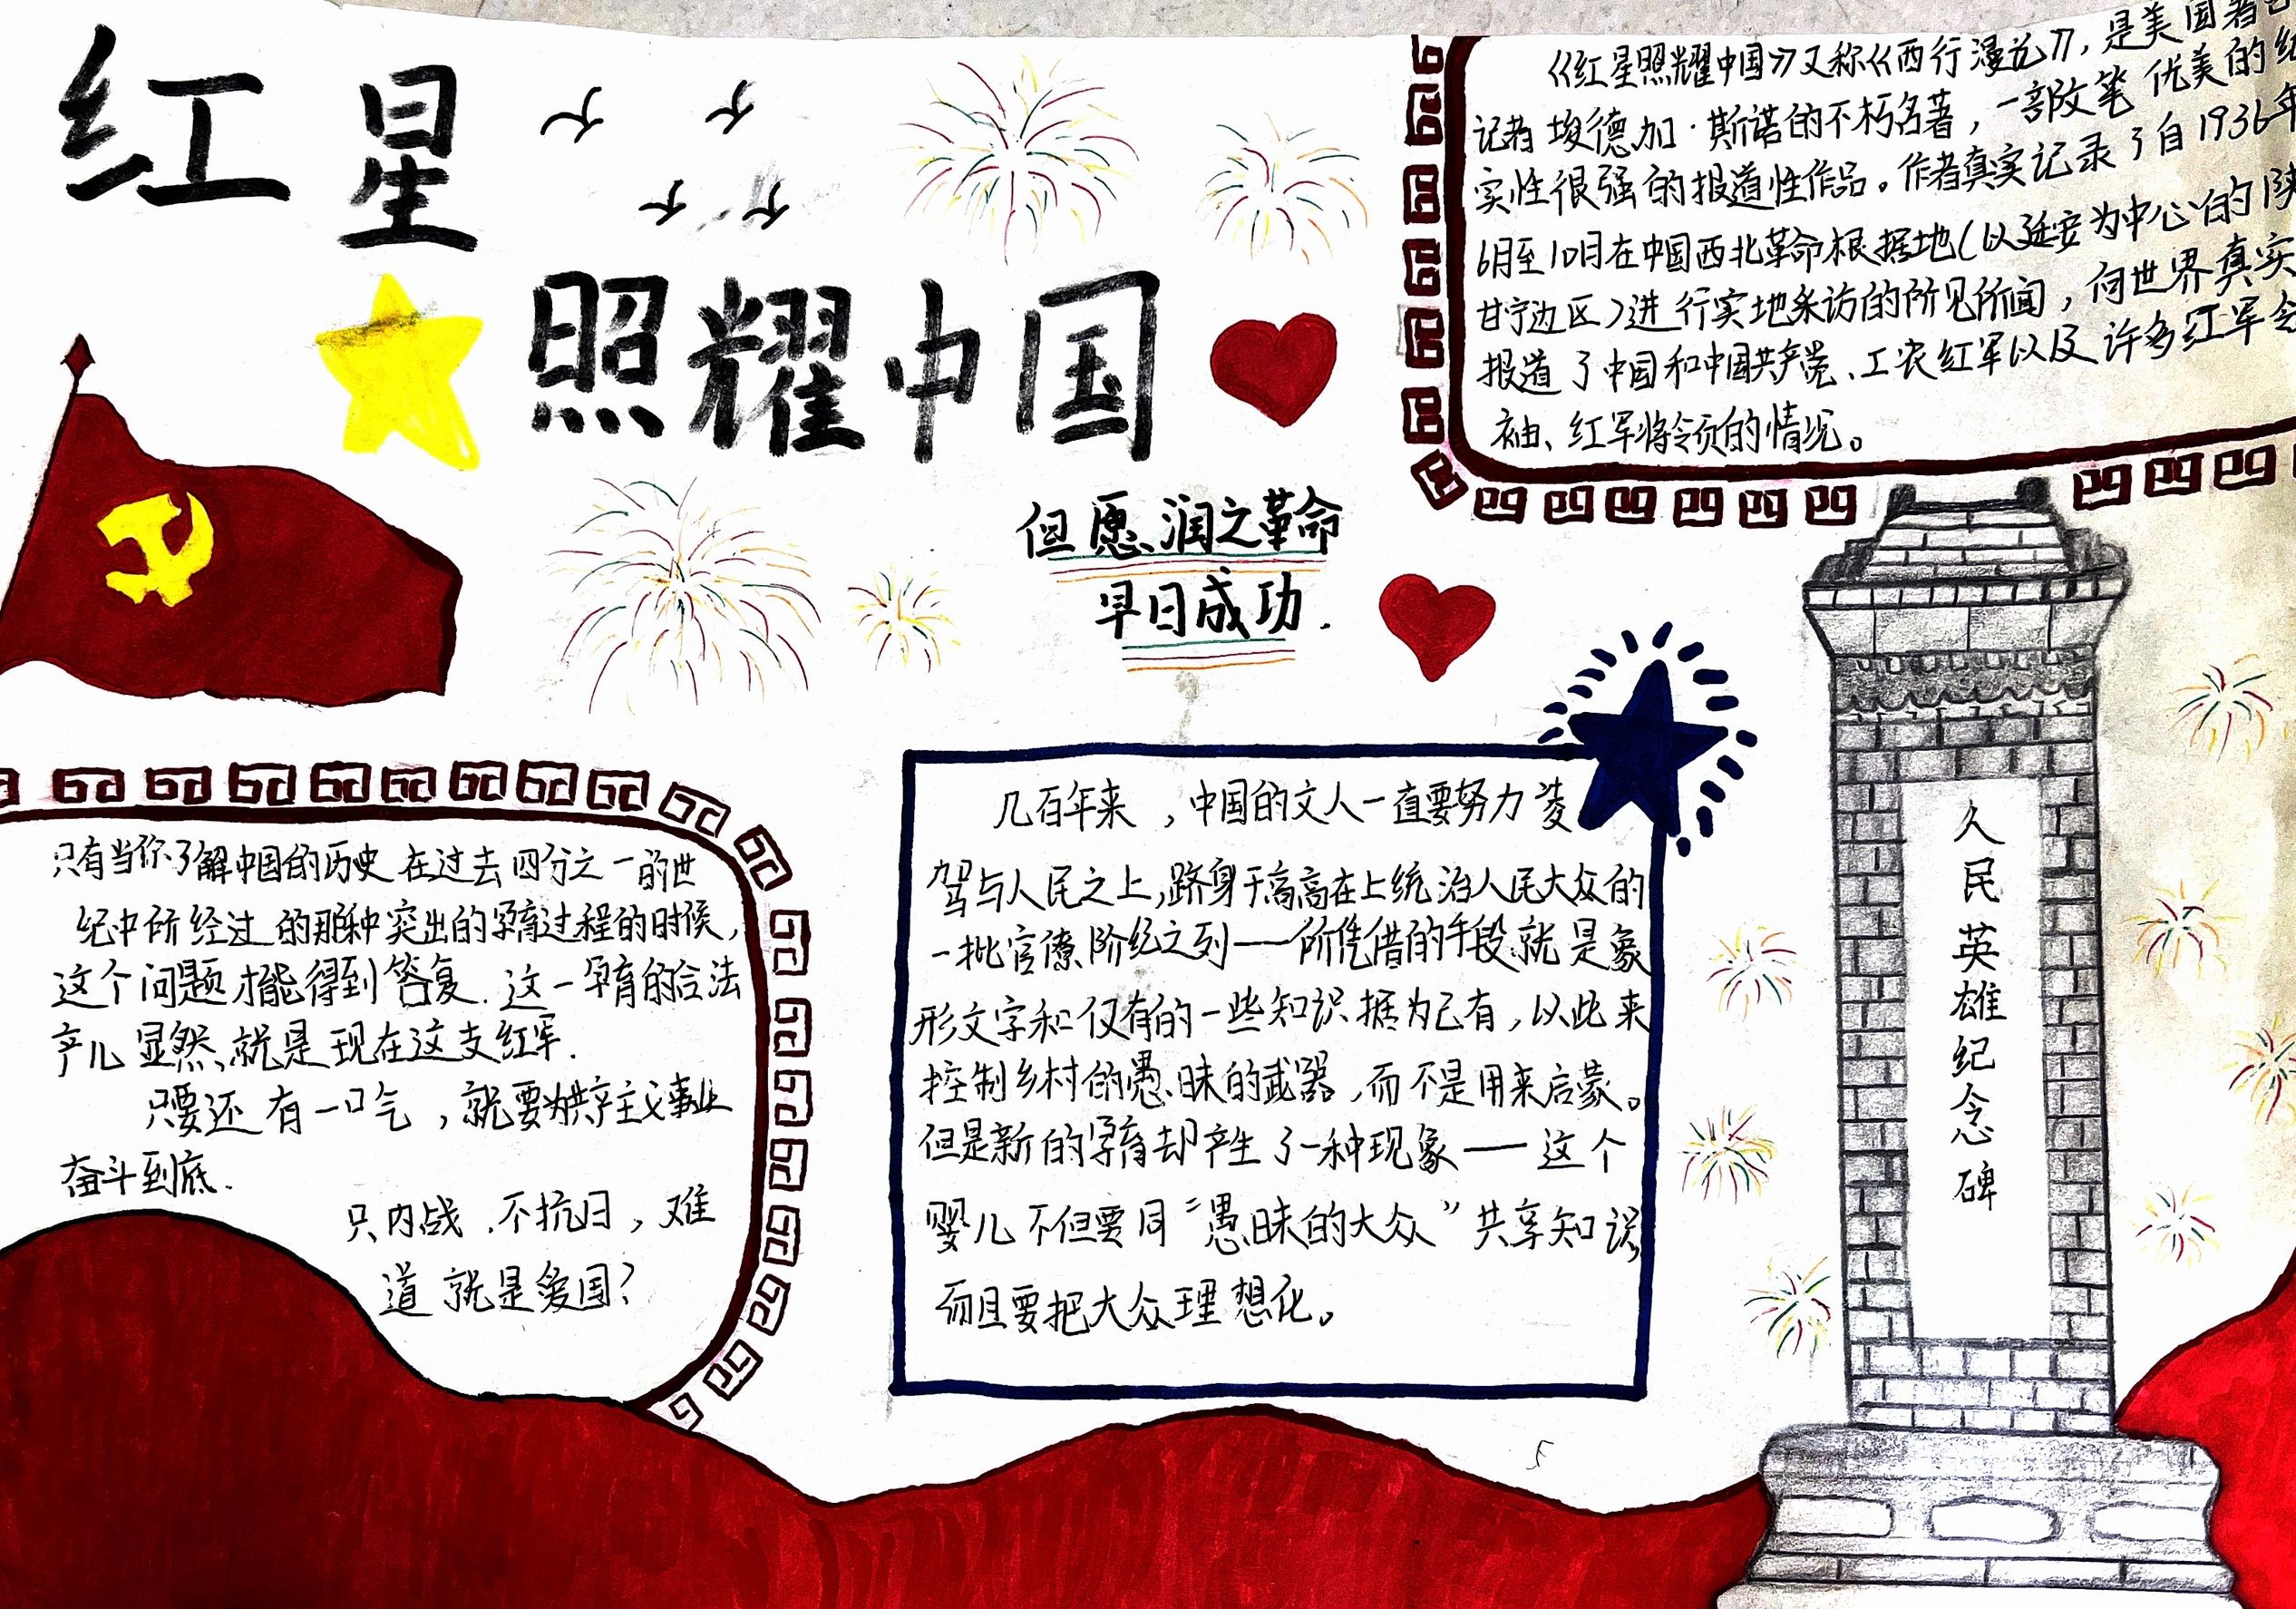 红星
照耀中国
但愿润之革命
早日成功.
《红星照耀中国》又称《西行漫记》,是美国著
记者埃德加·斯诺的不朽名著,一部文笔优美的纪
实性很强的报道性作品。作者真实记录了自1936年
6月至10月在中国西北革命根据地(以延安为中心的陕
甘宁边区)进行实地采访的所见所闻,向世界真实
报道了中国和中国共产党、工农红军以及许多红军
袖、红军将领的情况。
只有当你了解中国的历史在过去四分之一的世
纪中所经过的那种突出的孕育过程的时候,
这个问题才能得到答复.这一孕育的合法
产儿显然、就是现在这支红军.
只要还有一口气,就要为共产主义事业
奋斗到底.
只内战.不抗日,难
道就是爱国?
几百年来,中国的文人一直要努力凌
驾与人民之上,跻身于高高在上统治人民大众的
一批官僚阶级之列——所凭借的手段.就是象
形文字和仅有的一些知识据为己有,以此来
控制乡村的愚昧的武器,而不是用来启蒙。
但是新的孕育却产生了一种现象——这个
婴儿不但要同“愚昧的大众”共享知识,
而且要把大众理想化。
久民英雄纪念碑